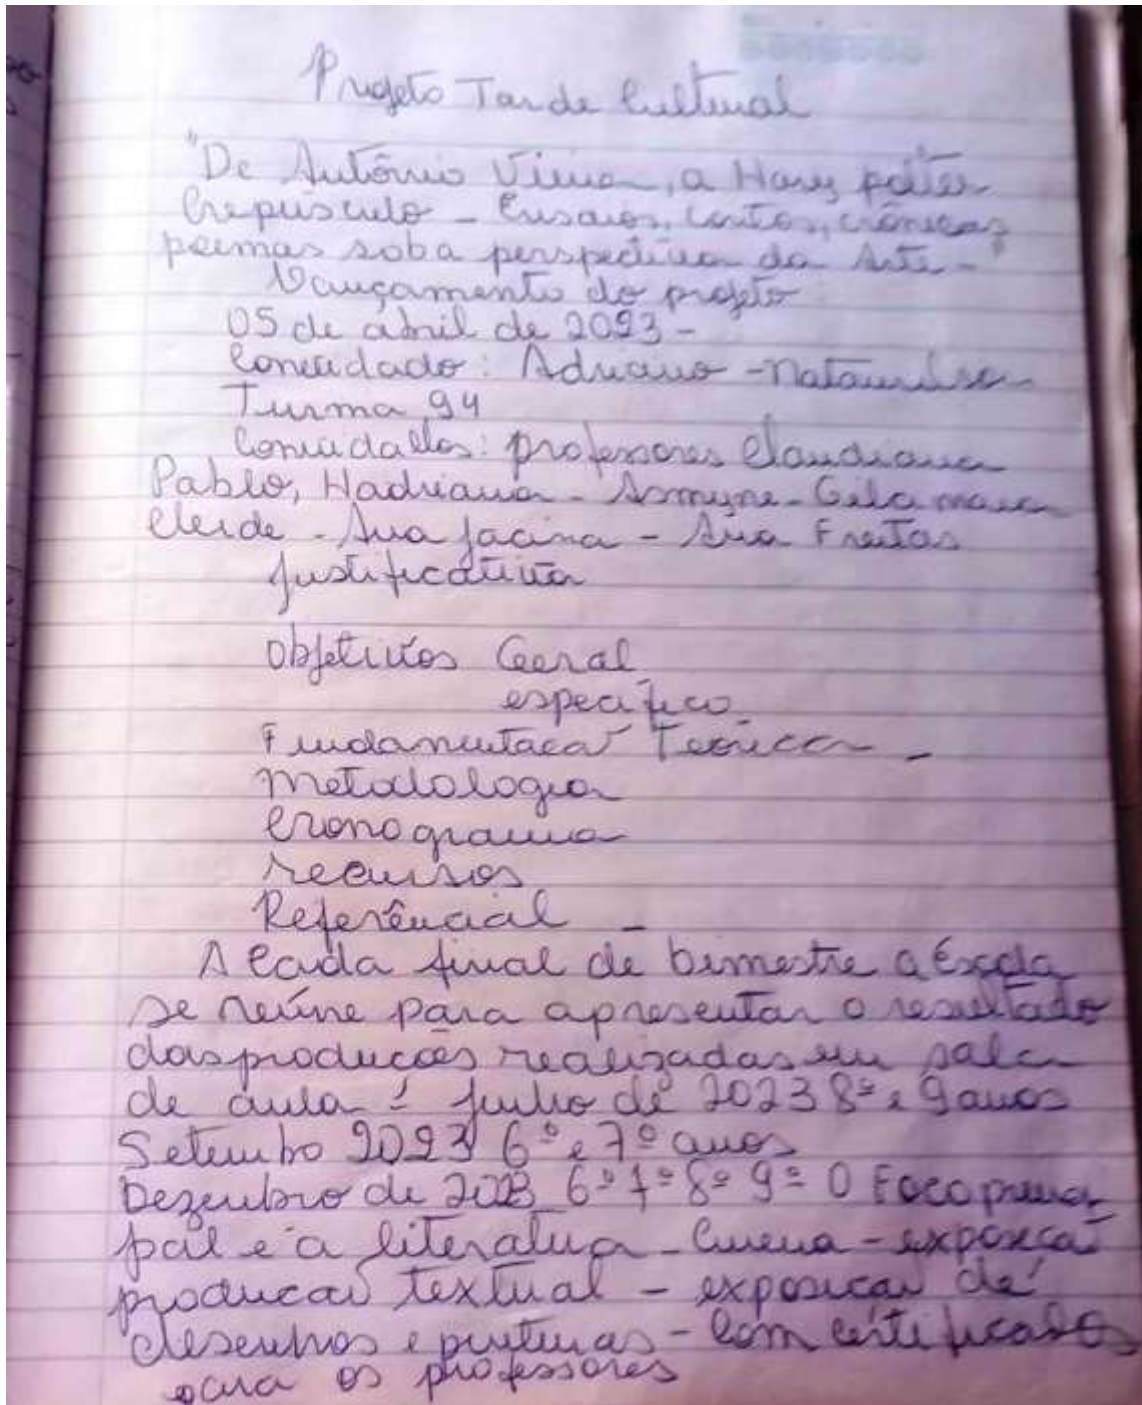 Projeto Tarde Cultural
"De Antônio Vieira, a Hary potter
Crepúsculo - Ensaios, contos, crônicas,
poemas soba perspectiva da Arte-"
Lançamento do projeto
05 de abril de 2023 -
Convidado: Adriano -
Turma 94
Convidados: professores Claudiana
Pablo, Hadriana - Asmyne - Gila maria
Cleide - Ana Jacina - Ana Freitas
Justificativa
Objetivos Geral
específico
Fundamentacaõ Teórica -
Metodologia
Cronograma
recursos
Referêncial -
A Cada final de bimestre a Escola
se reúne para apresentar o resultado
dasproducões realizadas em sala
de aula - Julho de 2023 8º e 9 anos
Setembro 2023 6º e 7º anos
Dezembro de 2023 6º 7º 8º 9º O Foco princi
pal e a literatura - Cinema - exposicaõ
producaõ textual - exposicaõ de
desenhos e pinturas - Com certificados
para os professores